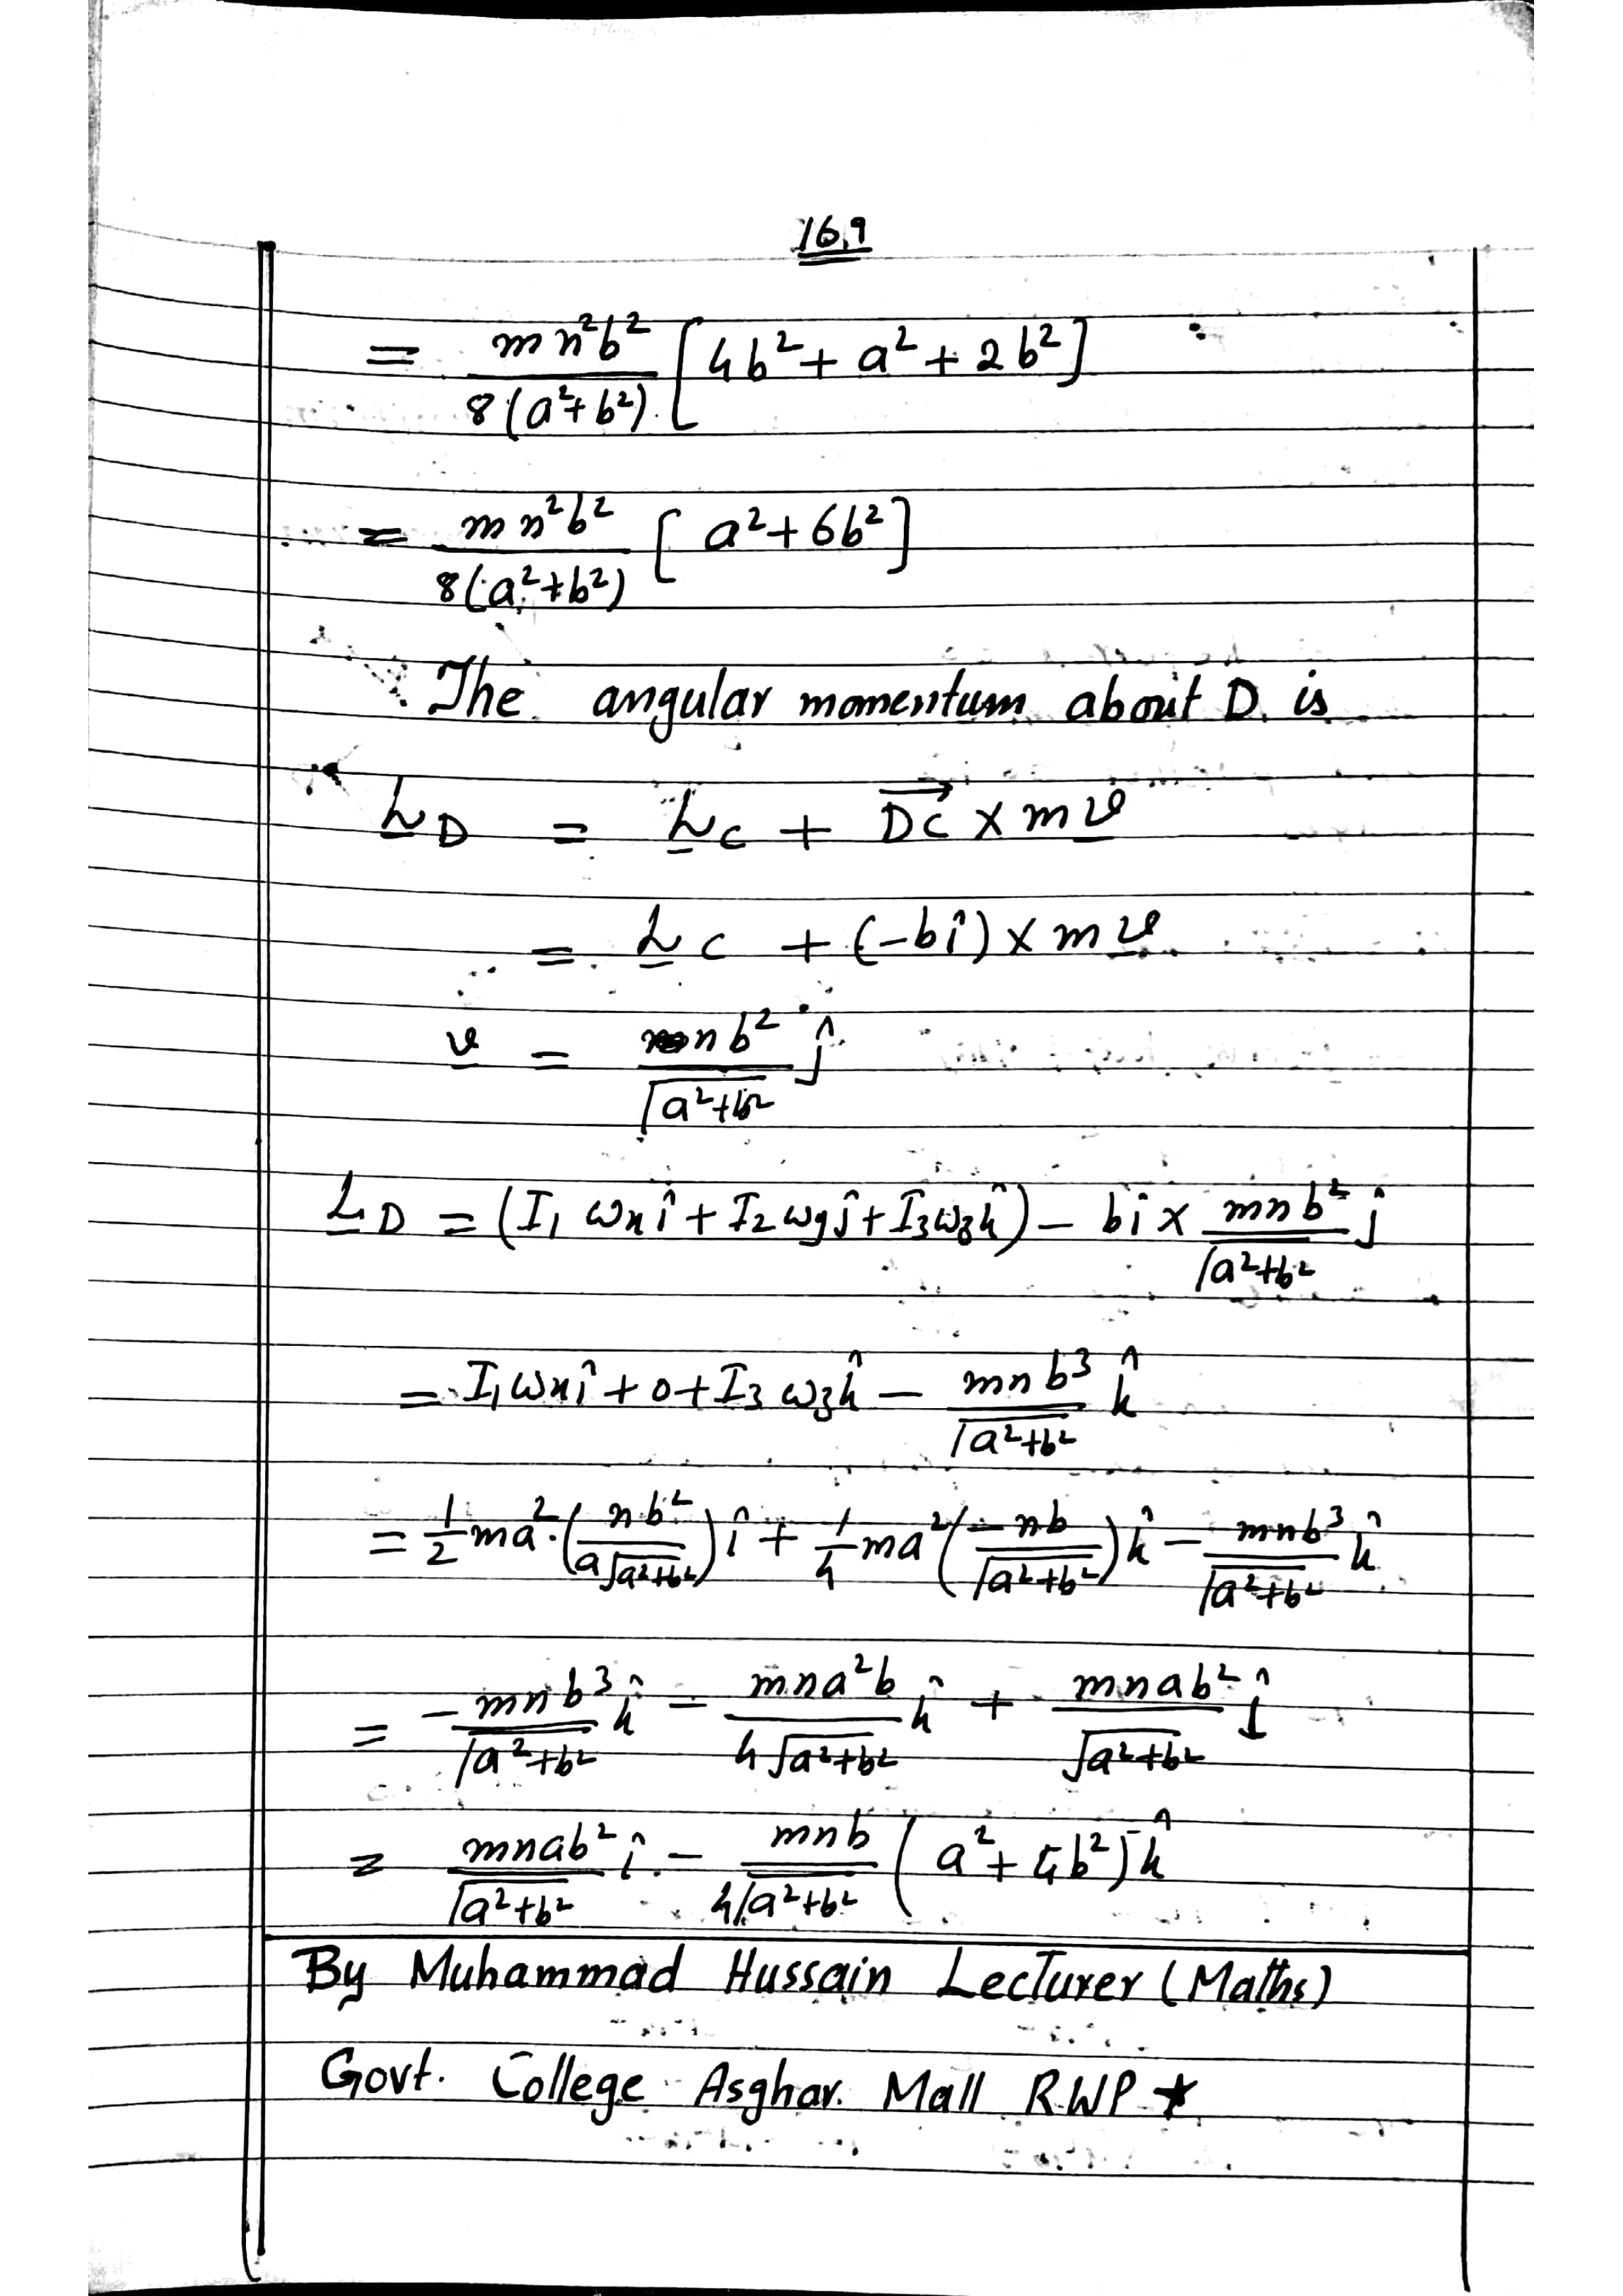 16.9
= mn²b²/8(a²+b²) [4b² + a² + 2b²]
= mn²b²/8(a²+b²) [a² + 6b²]
The angular momentum about D. is
L_D = L_C + DC⃗ × m v
= L_C + (-bî) × m v
v = nb²/√(a²+b²) ĵ
L_D = (I₁ ωx î + I₂ ωy ĵ + I₃ ωz k̂) - bî × mnb²/√(a²+b²) ĵ
= I₁ ωx î + 0 + I₃ ωz k̂ - mnb³/√(a²+b²) k̂
= 1/2 ma² · (nb²/a√(a²+b²)) î + 1/4 ma² (-nb/√(a²+b²)) k̂ - mnb³/√(a²+b²) k̂
= -mnb³/√(a²+b²) k̂ - mna²b/4√(a²+b²) k̂ + mnab²/√(a²+b²) î
= mnab²/√(a²+b²) î - mnb/4√(a²+b²) (a² + 4b²) k̂
By Muhammad Hussain Lecturer (Maths)
Govt. College Asghar Mall RWP ★